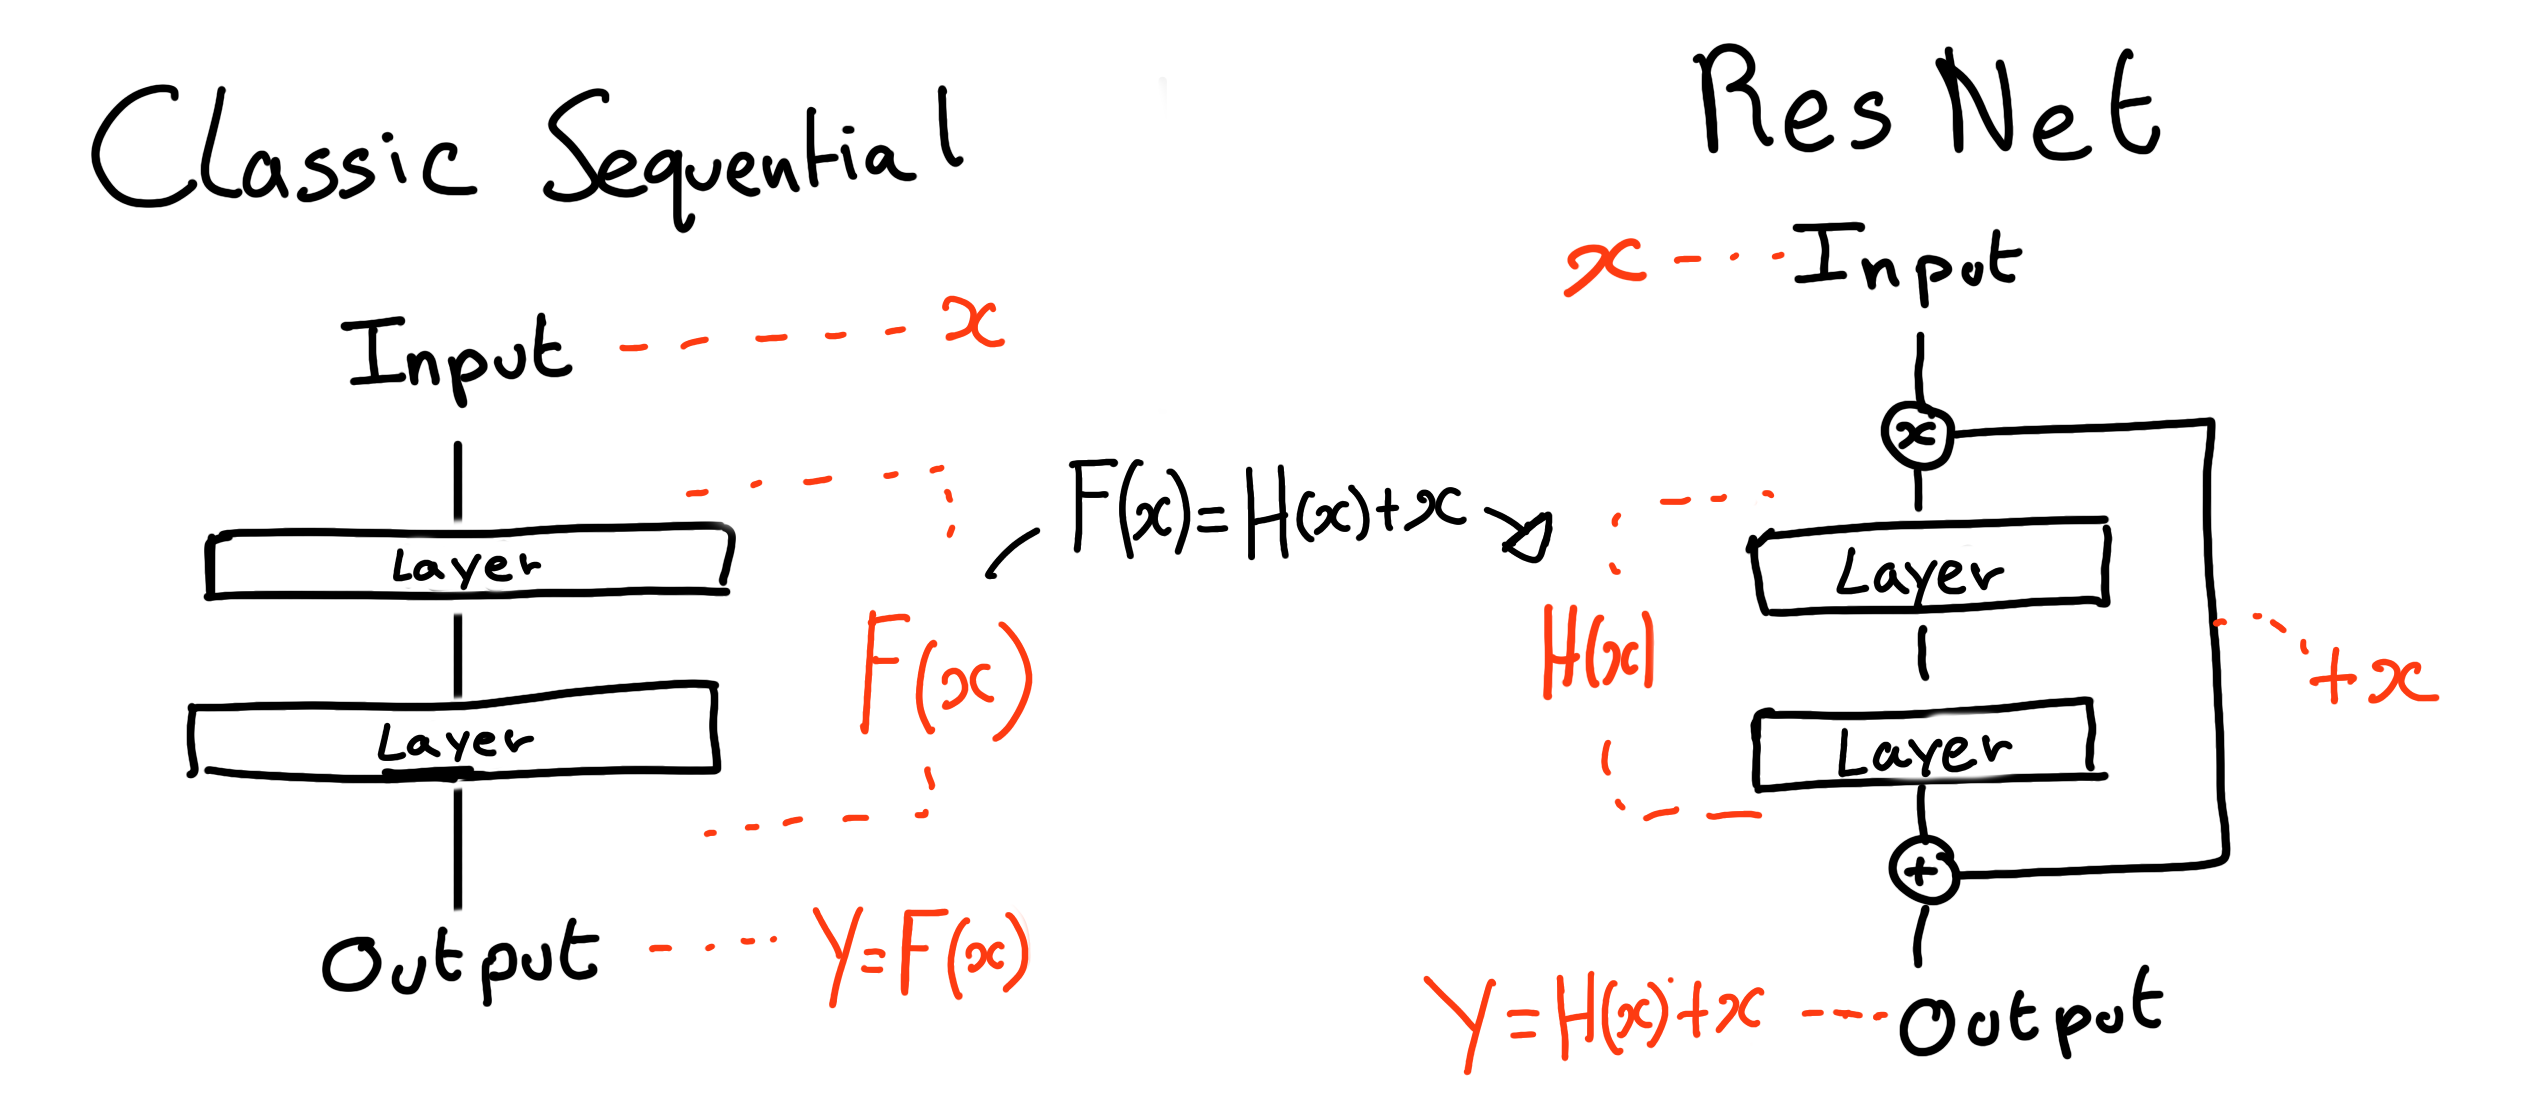 Classic Sequential
Input x
Layer
F(x)
Layer
Output Y=F(x)
F(x)=H(x)+x
ResNet
x Input
x
Layer
H(x)
+x
Layer
+
Y=H(x)+x Output